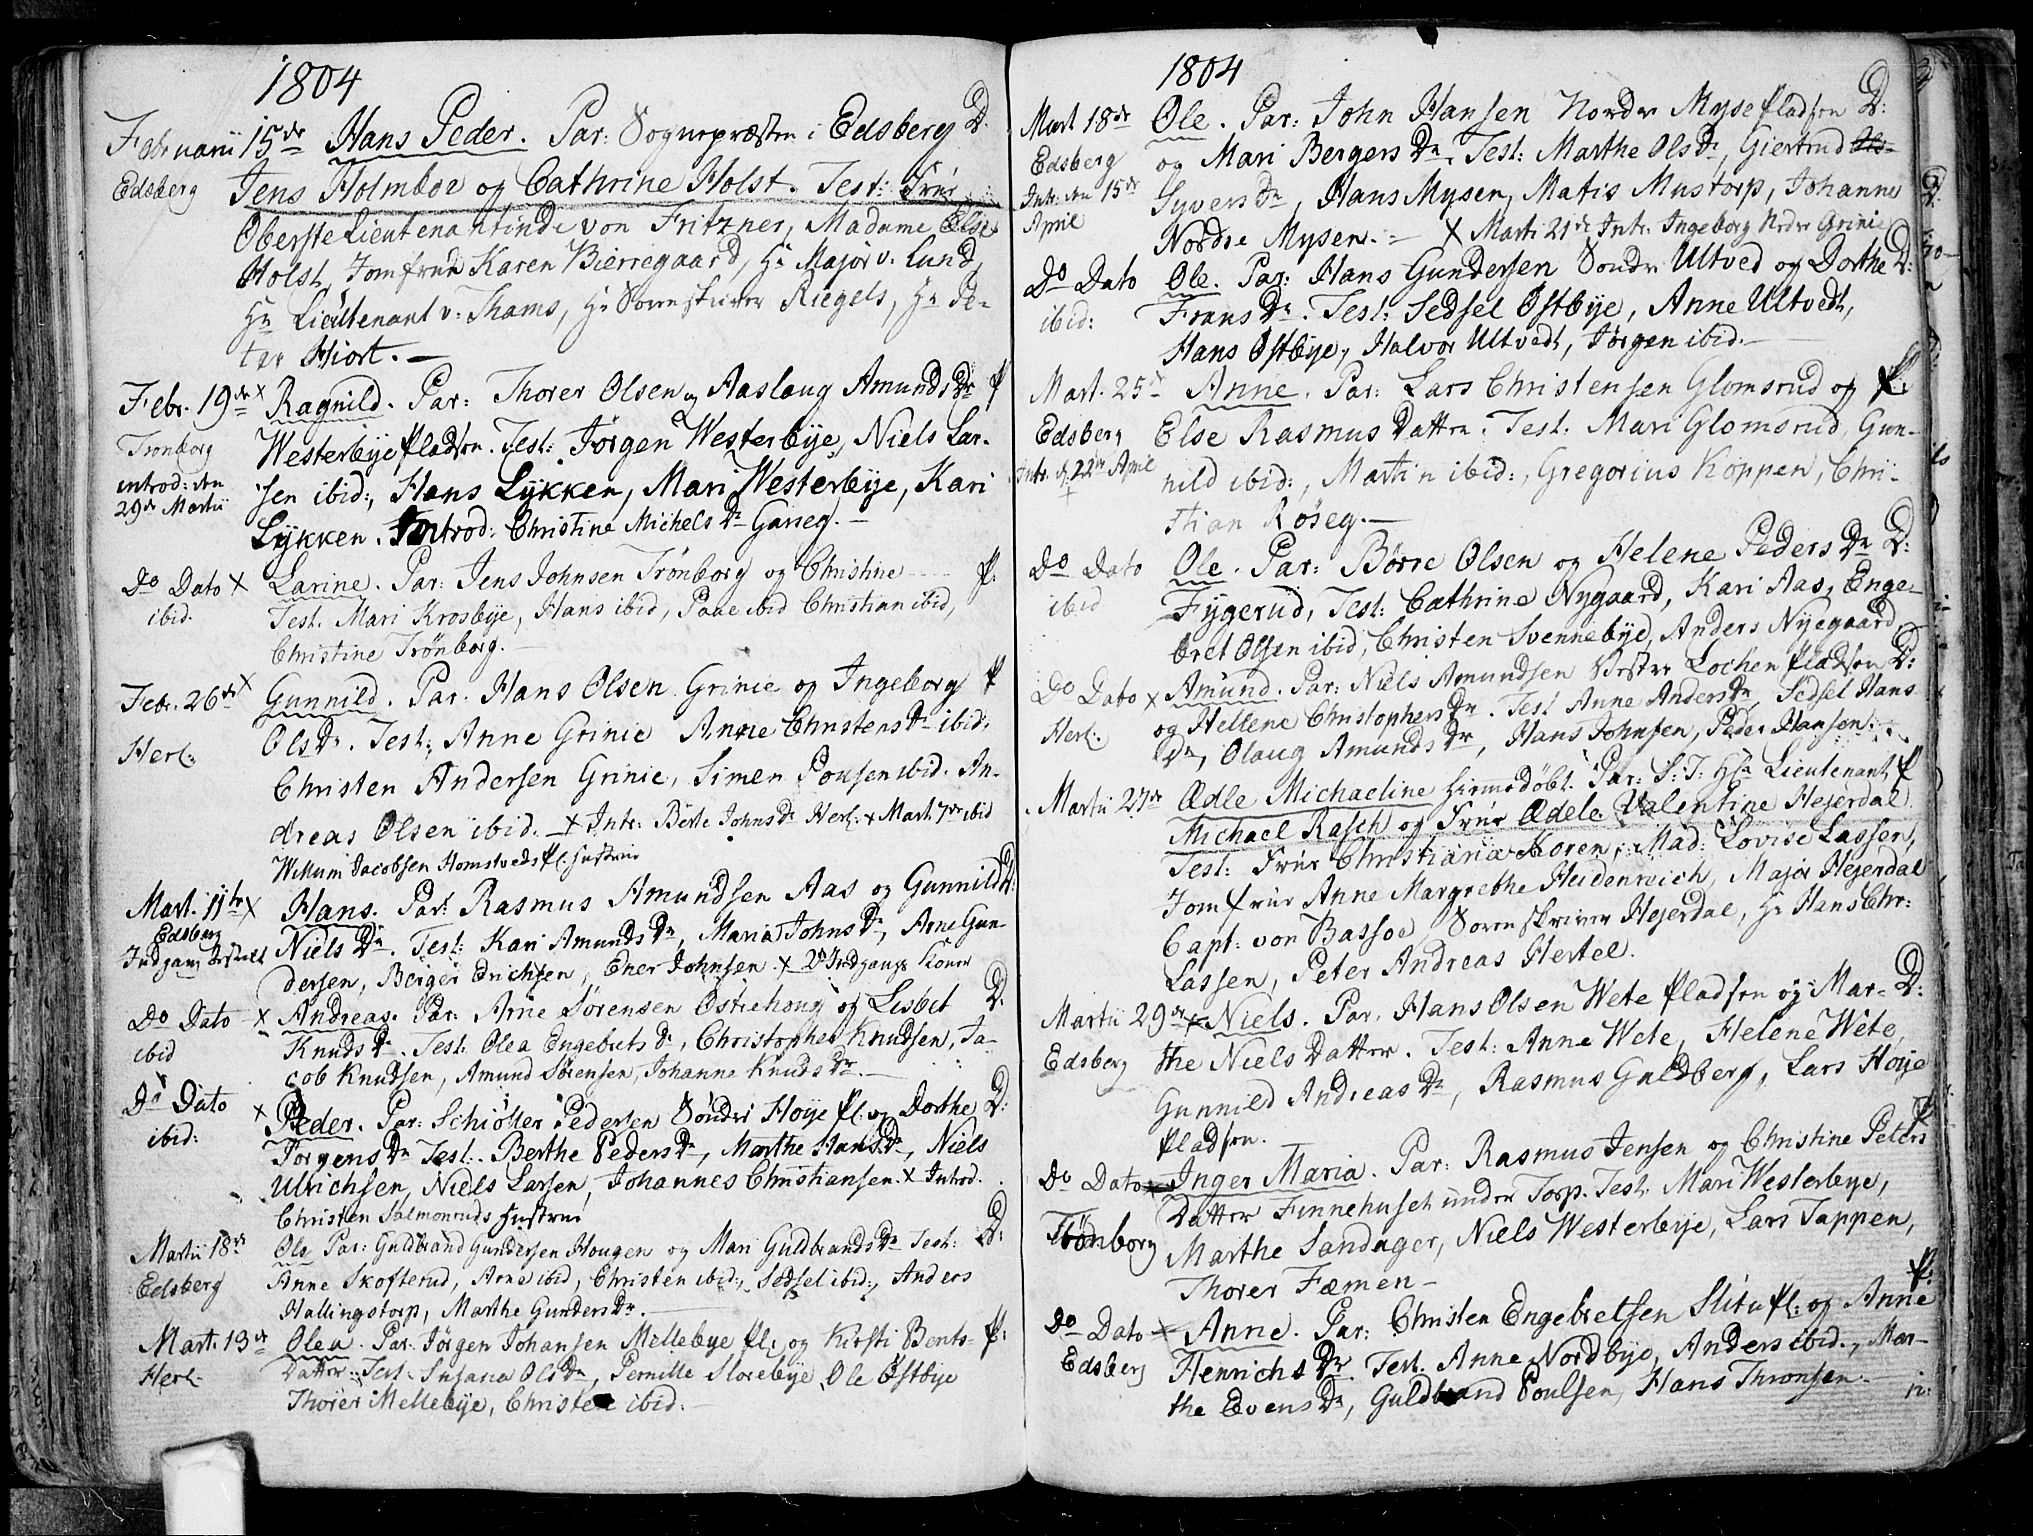 1804
Februarii 15de Hans Peder. Par: Sognepræsten i Edsberg D.
Edsberg Jens Holmboe og Cathrine Holst. Test: Frue
Oberstelieutenantinde von Fritzner, Madame Else
Holst, Jomfrue Karen Bierregaard, Hr Major v. Lund,
Hr Lieutenant v: Thams, Hr Sorenskriver Riegels, Hr Pe-
ter Hiort. —
Febr. 19de x Ragnild. Par: Thorer Olsen og Aaslaug Amunds Dr P
Trønborg Westerbye pladsen. Test: Jørgen Westerbye, Niels Lar-
introd: den sen ibid:, Hans Lykken, Mari Westerbye, Kari
29de Martii Lykken. Introd: Christine Michels Dr Garseg. —
Do Dato x Larine. Par: Jens Johnsen Trønborg og Christine — P.
ibid. Test. Mari Krosbye, Hans ibid, Paae ibid Christian ibid,
Christine Trönborg. —
Febr. 26de x Gunnild. Par. Hans Olsen Grinie og Ingeborg P
Herl: Ols Dr. Test: Anne Grinie Anne Christens Dr ibid,
Christen Andersen Grinie, Simen Pousen ibid. An-
dreas Olsen ibid. — x Intr: Berte Johns Dr Herl: x Mart. 7de ibid
Willum Jacobsen Homstvedt Pl: Hustrue
Mart. 11te x Hans. Par: Rasmus Amundsen Aas og Gunnild D:
Edsberg Niels Dr. Test: Kari Amunds Dr, Maria Johns Dr, Arne Gun-
Indgang dersen, Berger Erichsen, Ener Johnsen. x 2de Indgangs Koner
Do Dato x Andreas. Par: Arne Sørensen Østiehoug og Lisbet D.
ibid Knuds Dr. Test: Olea Engebrets Dr, Christopher Knudsen, Ja-
cob Knudsen, Amund Sørensen, Johanne Knuds Dr. —
Do Dato x Peder. Par: Schiöller Pedersen Sönder Høye Pl. og Dorthe D:
ibid: Jørgens Dr Test. Berthe Peders Dr, Marthe Hans Dr, Niels
Ulrichsen, Niels Larsen, Johannes Christiansen. x Introd.
Christen Salmonruds Hustrue
Martii 18de Ole Par: Guldbrand Gundersen Hougen og Mari Guldbrands Dr Test: D:
Edsberg Anne Skofterud, Arne ibid, Christen ibid:, Sedsel ibid:, Anders
Hallingstorp, Marthe Gunders Dr. —
Mart. 13de Olea. Par. Jørgen Johansen Mellebye Pl: og Kirsti Bents- P:
Herl- Datter. Test: Susana Ols Dr, Pernille Slorebye Ole Østbye
Thorer Mellebye, Christen ibid: —
1804
Mart 18de Ole. Par: John Hansen Nordre Myse pladsen D:
Edsberg og Mari Bergers Dr. Test: Marthe Ols Dr, Giertrud Ols-
Intr: den 15de Syvers Dr, Hans Mysen, Matis Mustorp, Johanne
April Nordre Mysen. — x Marti 21de Intr: Ingeborg Nrdre Grinie
Do Dato Ole. Par: Hans Gundersen Søndr Ultved og Dorthe D:
ibid: Frans Dr. Test: Sedsel Østbye, Anne Ultvedt,
Hans Østbye, Halvor Ultvedt, Jørgen ibid. —
Mart. 25de Anne. Par: Lars Christensen Glomsrud og P:
Edsberg Else Rasmus Datter. Test: Mari Glomsrud, Gun-
Intr. d. 22de April nild ibid:, Martin ibid:, Gregorius Koppen, Chri-
stian Røseg. —
Do Dato Ole. Par: Børre Olsen og Helene Peders Dr D:
ibid Fygerud, Test: Cathrine Nygaard, Kari Aas, Enge-
bret Olsen ibid, Christen Svennebye, Anders Nyegaard
Do Dato x Amund. Par: Niels Amundsen Vestre Lochen Pladsen D:
Herl. og Hellene Christophers Dr. Test Anne Anders Dr, Sedsel Hans
Dr, Olaug Amunds Dr, Hans Johnsen, Peder Hansen.
Martii 27de Ædle Michaeline Hiemmedøbt. Par: S: T: Hr Lieutenant P
Michael Rasch og Frue Ædele Valentine Hejerdal.
Test: Frue Christiana Koren, Mad: Lovise Lassen,
Jomfrue Anne Margrethe Heidenreich, Major Hejerdal
Capt: von Bassoe, Sorenskriver Hejerdal, Hr Hans Chr:
Lassen, Peter Andreas Hertel.
Martii 29de x Niels. Par. Hans Olsen Wete Pladsen og Mar- D:
Edsberg the Niels Datter. Test: Anne Wete, Helene Wete,
Gunnild Andreas Dr, Rasmus Guldberg, Lars Høye
Pladsen.
Do Dato x Inger Maria. Par: Rasmus Jensen og Christine Peters P
Trönborg Datter Finnehuset under Torp. Test. Mari Westerbye,
Marthe Sandager, Niels Westerbye, Lars Tappen,
Thorer Fæmen —
Do Dato x Anne. Par: Christen Engebretsen Slitu Pl: og Anne P:
Edsberg Henrichs Dr. Test. Anne Nordbye, Anders ibid., Mar-
the Evens Dr, Guldbrand Poulsen, Hans Thronsen —